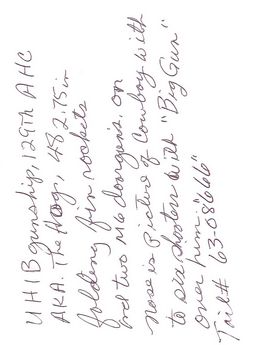 UH1B gunship, 129TH AHC
AKA. The Hog, 48 2.75 in
folding fin rockets
and two M6 , on
nose is picture of Cowboy with
to six shooters with "Big Gun"
over him."
Tail# 63-08666"